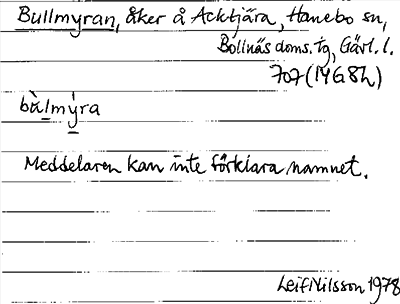 Bullmyran, åker å Acktjära, Hanebo sn,
Bollnäs doms. tg, Gävl. l.
707 (14G8h)
bùlmy̗ra
Meddelaren kan inte förklara namnet.
Leif Nilsson 1978